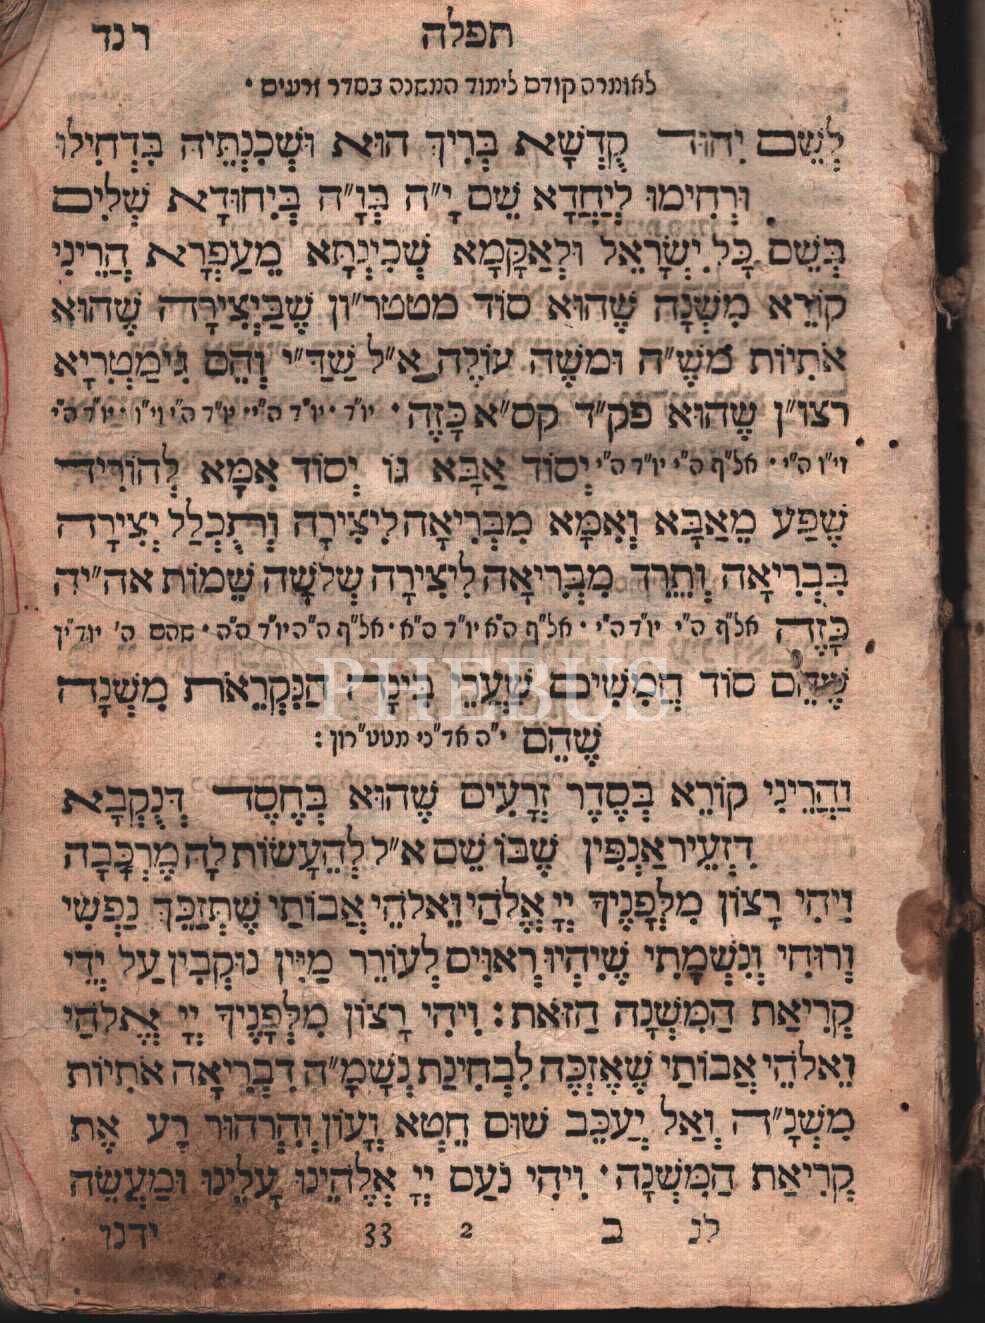 תפלה רנד
לאומרה קודם לימוד המשנה בסדר זרעים •
לְשֵׁם יִחוּד קֻדְשָׁא בְּרִיךְ הוּא וּשְׁכִנְתֵּיהּ בִּדְחִילוּ
וּרְחִימוּ לְיַחֲדָא שֵׁם י״ה בְּו״ה בְּיִחוּדָא שְׁלִים
בְּשֵׁם כָּל יִשְׂרָאֵל וּלְאַקָּמָא שְׁכִינְתָּא מֵעַפְרָא הֲרֵינִי
קוֹרֵא מִשְׁנָה שֶׁהוּא סוֹד מטטר״ון שֶׁבַּיְצִירָה שֶׁהוּא
אֹתִיוֹת מֹשֶׁ״ה וּמֹשֶׁה עוֹלֶה א״ל שַׁדַּ״י וְהֵם גִּימַטְרִיָּא
רצו״ן שֶׁהוּא פק״ד קס״א כָּזֶה • יו״ד • יו״ד ה״י • יו״ד ה״י וי״ו • יו״ד ה״י
וי״ו ה״י • אל״ף ה״י יו״ד ה״י יְסוֹד אַבָּא גוֹ יְסוֹד אִמָּא לְהוֹרִיד
שֶׁפַע מֵאַבָּא וְאִמָּא מִבְּרִיאָה לִיצִירָה וְתֻכְלַל יְצִירָה
בִּבְרִיאָה וְתֵרֵד מִבְּרִיאָה לִיצִירָה שְׁלֹשָׁה שֵׁמוֹת אה״יה
כָּזֶה אל״ף ה״י יו״ד ה״י • אל״ף ה״א יו״ד ה״א • אל״ף ה״ה יו״ד ה״ה • שהם ה׳ יודי״ן
שֶׁהֵם סוֹד חֲמִשִּׁים שַׁעֲרֵי בִּינָה הַנִּקְרֵאת מִשְׁנָה
שֶׁהֵם י״ה אד״ני מטט״רון :
וַהֲרֵינִי קוֹרֵא בְּסֵדֶר זְרָעִים שֶׁהוּא בְּחֶסֶד דְּנֻקְבָא
דִזְעֵיר אַנְפִּין שֶׁבּוֹ שֵׁם א״ל לְהֵעָשׂוֹת לָהּ מֶרְכָּבָה
וִיהִי רָצוֹן מִלְּפָנֶיךָ יְיָ אֱלֹהַי וֵאלֹהֵי אֲבוֹתַי שֶׁתְּזַכֵּךְ נַפְשִׁי
וְרוּחִי וְנִשְׁמָתִי שֶׁיִּהְיוּ רְאוּיִם לְעוֹרֵר מַיִּין נוּקְבִין עַל יְדֵי
קְרִיאַת הַמִּשְׁנָה הַזֹּאת : וִיהִי רָצוֹן מִלְּפָנֶיךָ יְיָ אֱלֹהַי
וֵאלֹהֵי אֲבוֹתַי שֶׁאֶזְכֶּה לִבְחִינַת נְשָׁמָ״ה דִבְרִיאָה אֹתִיוֹת
מִשְׁנָ״ה וְאַל יְעַכֵּב שׁוּם חֵטְא וְעָוֹן וְהִרְהוּר רָע אֶת
קְרִיאַת הַמִּשְׁנָה • וִיהִי נֹעַם יְיָ אֱלֹהֵינוּ עָלֵינוּ וּמַעֲשֵׂה
לג ב 2 33 ידנו
PHEBUS